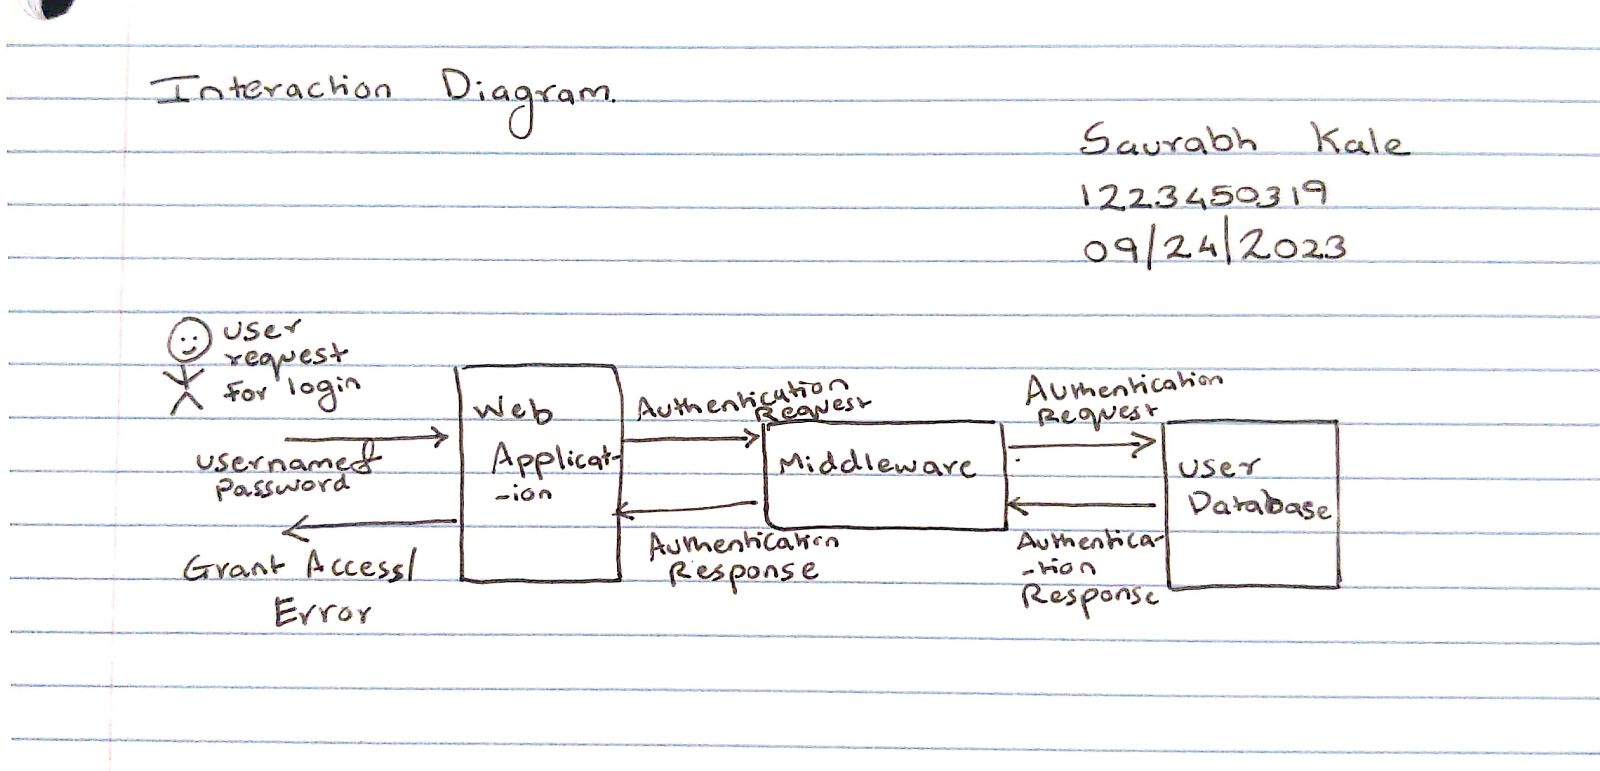 Interaction Diagram.
Saurabh Kale
1223450319
09/24/2023
user
request
for login
username &
password
Grant Access/
Error
Web
Applicat-
-ion
Authentication
Request
Authentication
Response
Middleware
Authentication
Request
Authentica-
-tion
Response
user
Database